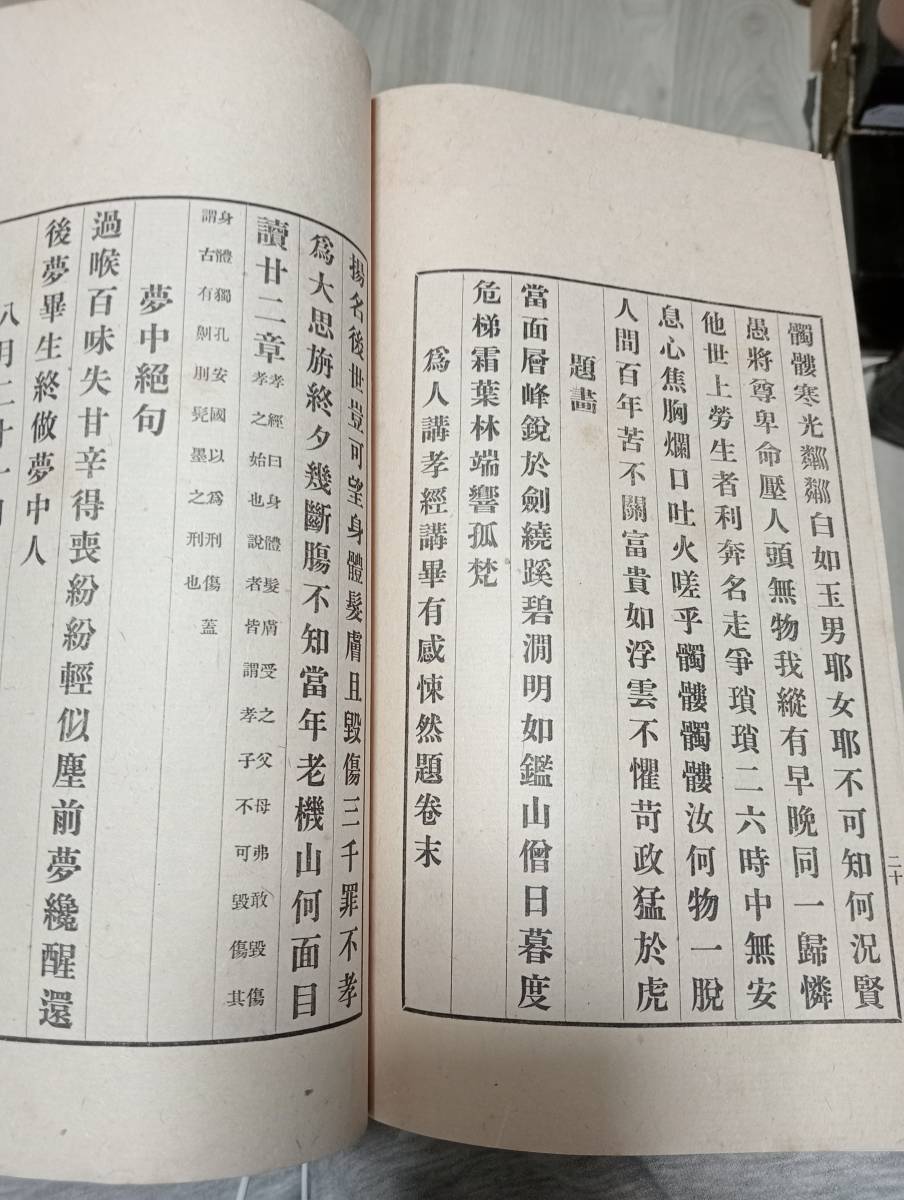 髑髏寒光粼粼白如玉男耶女耶不可知何況賢
愚將尊卑命壓人頭無物我縱有早晚同一歸憐
他世上勞生者利奔名走爭瑣瑣二六時中無安
息心焦胸爛口吐火嗟乎髑髏髑髏汝何物一脫
人間百年苦不關富貴如浮雲不懼苛政猛於虎
題畵
當面層峰銳於劍繞蹊碧澗明如鑑山僧日暮度
危梯霜葉林端響孤梵
爲人講孝經講畢有感悚然題卷末
二十
揚名後世豈可望身體髮膚且毀傷三千罪不孝
爲大思旃終夕幾斷腸不知當年老機山何面目
讀廿二章孝經曰身體髮膚受之父母弗敢毀傷
孝之始也說者皆謂孝子不可毀傷其
身體獨孔安國以爲刑傷蓋
謂古有劓刖髡墨之刑也
夢中絕句
過喉百味失甘辛得喪紛紛輕似塵前夢纔醒還
後夢畢生終做夢中人
八月二十一日